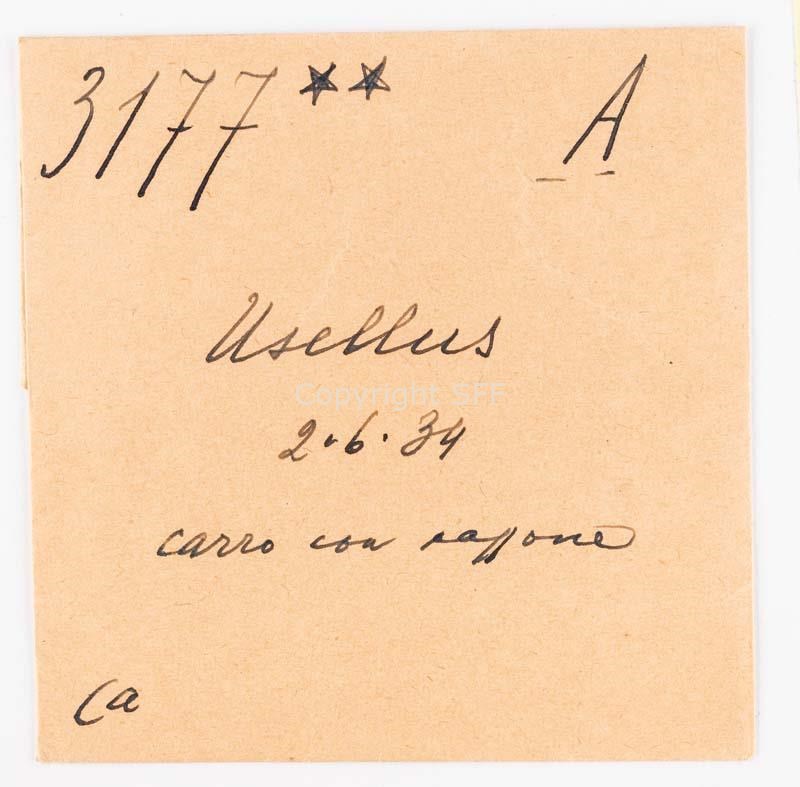 3177 ** A
Usellus
Copyright SFF
2.6.34
carro con
Ca